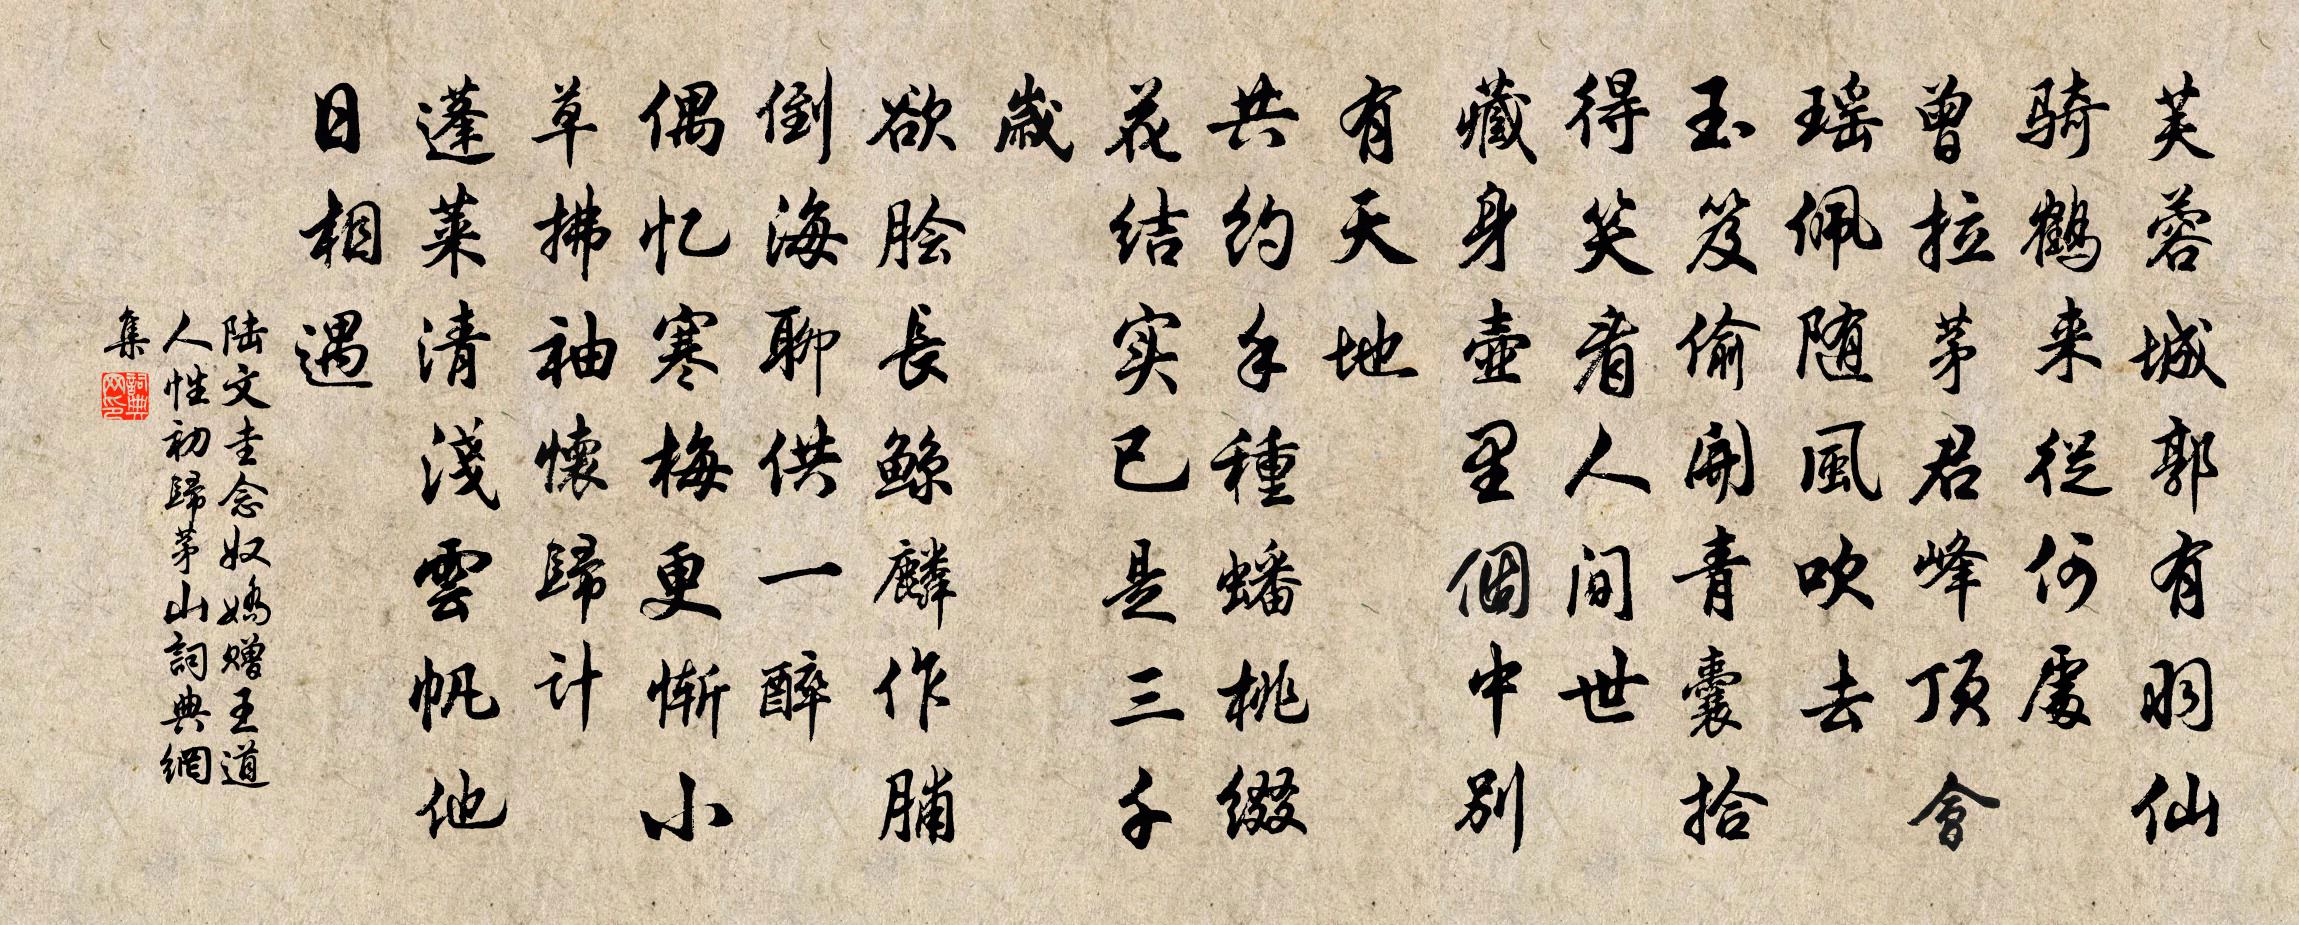 芙蓉城郭有羽仙
骑鹤来從何處
曾拉茅君峰顶會
瑶佩随風吹去
玉笈偷開青囊拾
得笑看人间世
藏身壶里個中别
有天地
共约手種蟠桃缀
花结实已是三千
嵗
欲脍長鲸麟作脯
倒海聊供一醉
偶忆寒梅更惭小
草拂袖懐歸计
蓬莱清淺雲帆他
日相遇
陆文圭念奴嬌赠王道
人性初歸茅山詞典網
集
詞典网印